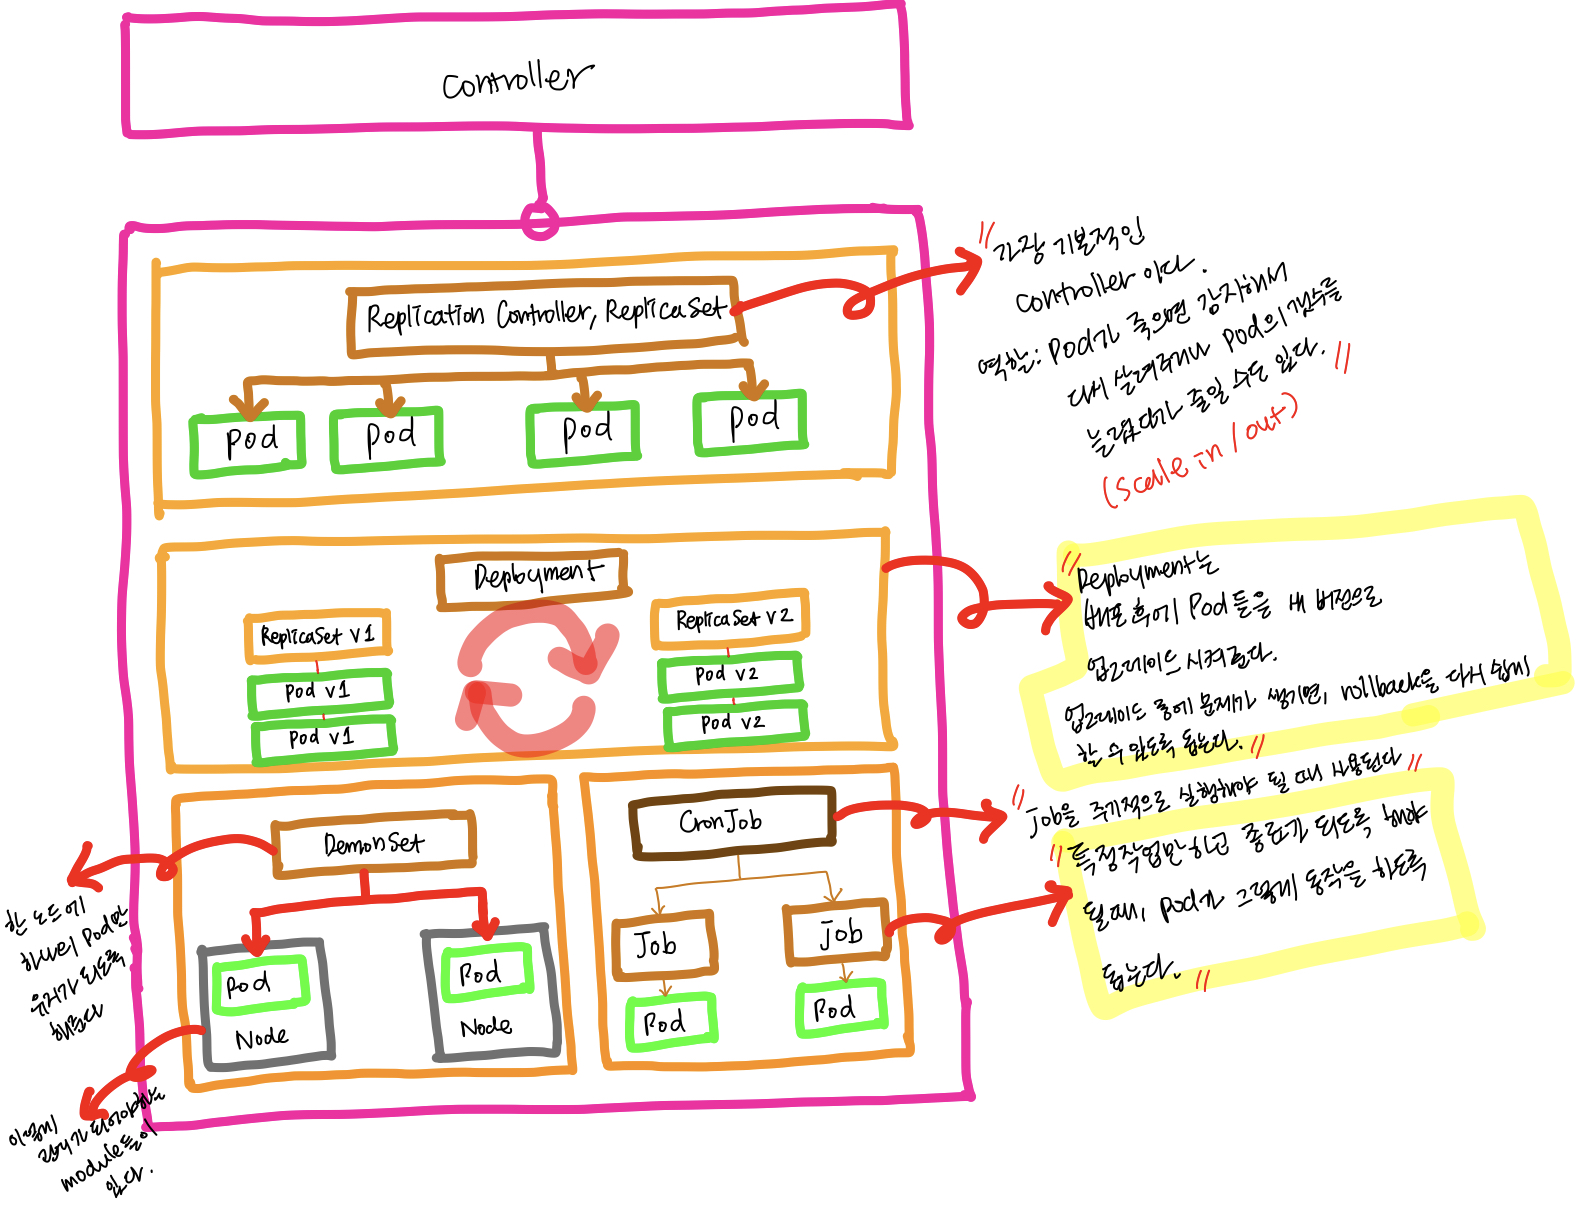 Controller
Replication Controller, ReplicaSet
Pod
Pod
Pod
Pod
"가장 기본적인
Controller 이다.
역할: Pod가 죽으면 감지해서
다시 살려주거나 Pod의 갯수를
늘렸다가 줄일 수도 있다."
(Scale in / out)
Deployment
ReplicaSet v1
Pod v1
Pod v1
ReplicaSet v2
Pod v2
Pod v2
"Deployment는
배포 후에 Pod 들을 새 버전으로
업그레이드 시켜준다.
업그레이드 중에 문제가 생기면, rollback을 다시 쉽게
할 수 있도록 돕는다."
DemonSet
Pod
Node
Pod
Node
한 노드에
하나의 Pod만
유지가 되도록
해준다
이렇게
되어야하는
module들이
있다.
CronJob
Job
Pod
job
Pod
"job을 주기적으로 실행해야 될 때 사용된다"
"특정작업만하고 종료가 되도록 해야
될 때, Pod가 그렇게 동작을 하도록
돕는다."